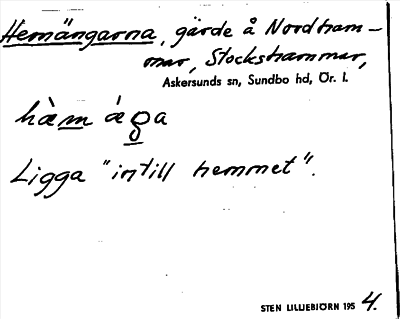 Hemängarna, gärde å Nordham-
mar, Stockshammar,
Askersunds sn, Sundbo hd, Ör. l.
hæ̀m ǽga
Ligga "intill hemmet".
STEN LILLIEBJÖRN 1954.